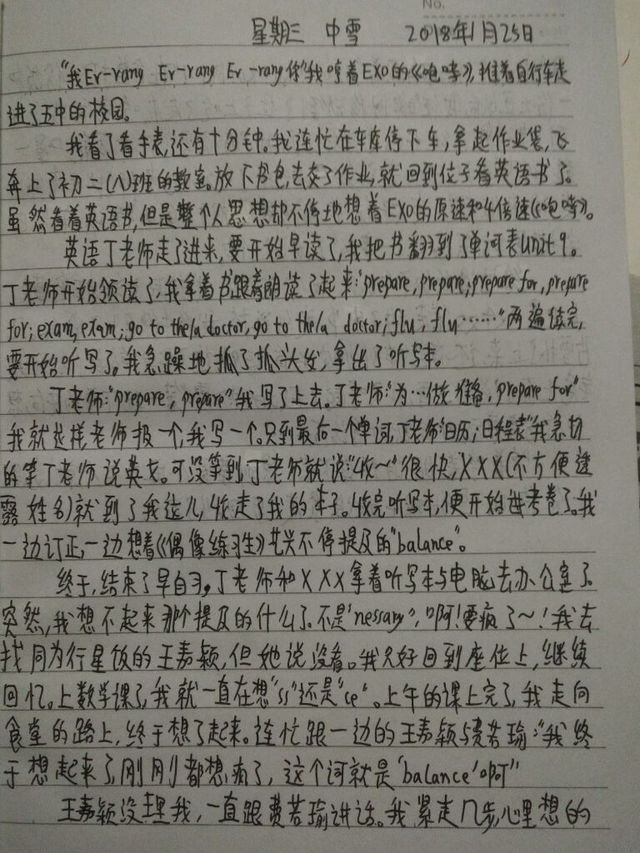 No.
星期三 中雪 2018年1月25日
"我Er-rang Er-rang Er-rang你"我哼着EXO的《咆哮》,推着自行车走
进了五中的校园。
我看了看手表,还有十分钟。我连忙在车库停下车,拿起作业袋,飞
奔上了初二(八)班的教室。放下书包,去交了作业,就回到位子看英语书了。
虽然看着英语书,但是整个人思想却不停地想着EXO的原速和4倍速《咆哮》。
英语丁老师走了进来,要开始早读了,我把书翻到了单词表Unit 9。
丁老师开始领读了,我拿着书跟着朗读了起来:"prepare,prepare;prepare for,prepare
for;exam,exam;go to the/a doctor,go to the/a doctor;flu,flu……"两遍读完,
要开始听写了。我急躁地抓了抓头发,拿出了听写本。
丁老师:"prepare,prepare"我写了上去。丁老师:"为…做准备,prepare for"
我就这样老师报一个,我写一个。只到最后一个单词,丁老师:"日历;日程表"我急切
的等丁老师说英文。可没等到,丁老师就说:"收~"很快,XXX(不方便透
露姓名)就到了我这儿,收走了我的本子。收完听写本,便开始母考卷了。我
一边订正,一边想着《偶像练习生》艺兴不停提及的"balance"。
终于,结束了早自习,丁老师和XXX拿着听写本与电脑去办公室了。
突然,我想不起来那个提及的什么了。不是"nessary",啊!要疯了~!我去
找同为行星饭的王嘉颖,但她说没看。我只好回到座位上,继续
回忆。上数学课了,我就一直在想"ss"还是"ce"。上午的课上完了,我走向
食堂的路上,终于想了起来。连忙跟一边的王嘉颖与费若瑜:"我终
于想起来了,刚刚都想疯了,这个词就是'balance'啊!"
王嘉颖没理我,一直跟费若瑜讲话。我紧走几步,心里想的